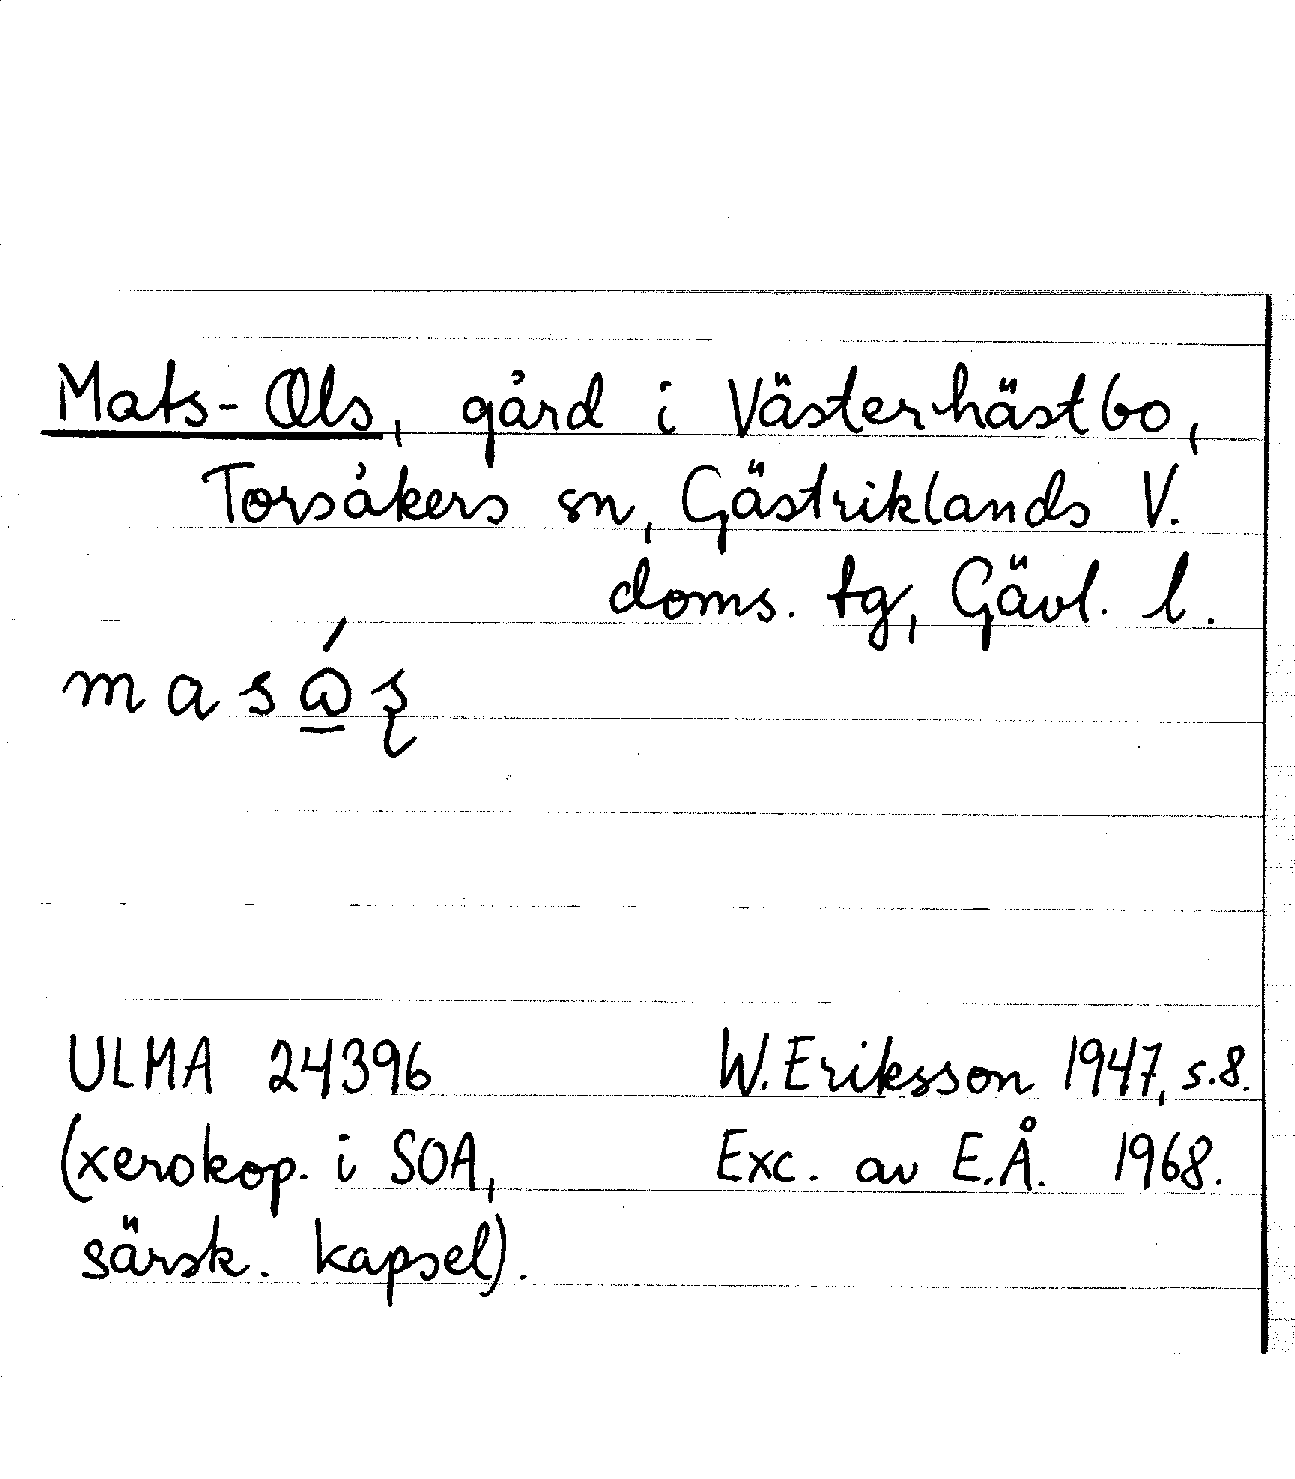 Mats-Ols, gård i Västerhästbo,
Torsåkers sn, Gästriklands V.
doms. tg, Gävl. l.
ULMA 24396 W. Eriksson 1947, s. 8.
(xerokop. i SOA, Exc. av E.Å. 1968.
särsk. kapsel).